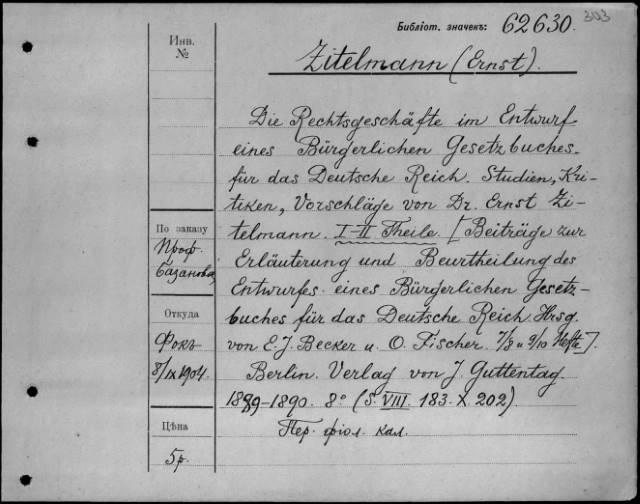 303
Библіот. значекъ: 62630.
Инв.
№
Zitelmann (Ernst).
Die Rechtsgeschäfte im Entwurf
eines Bürgerlichen Gesetzbuches
für das Deutsche Reich. Studien, Kri-
tiken, Vorschläge von Dr. Ernst Zi-
telmann. I-II Theile. [Beiträge zur
Erläuterung und Beurtheilung des
Entwurfes eines Bürgerlichen Gesetz-
buches für das Deutsche Reich. Hrsg.
von E. J. Becker u. O. Fischer. 7/8 u 9/10 Hefte].
Berlin. Verlag von J. Guttentag.
1889-1890. 8° (S. VIII. 183. X 202)
Пер. фіол. кал.
По заказу
Проф.
Базанова
Откуда
Фокъ
8/IX 1904.
Цѣна
5 р.